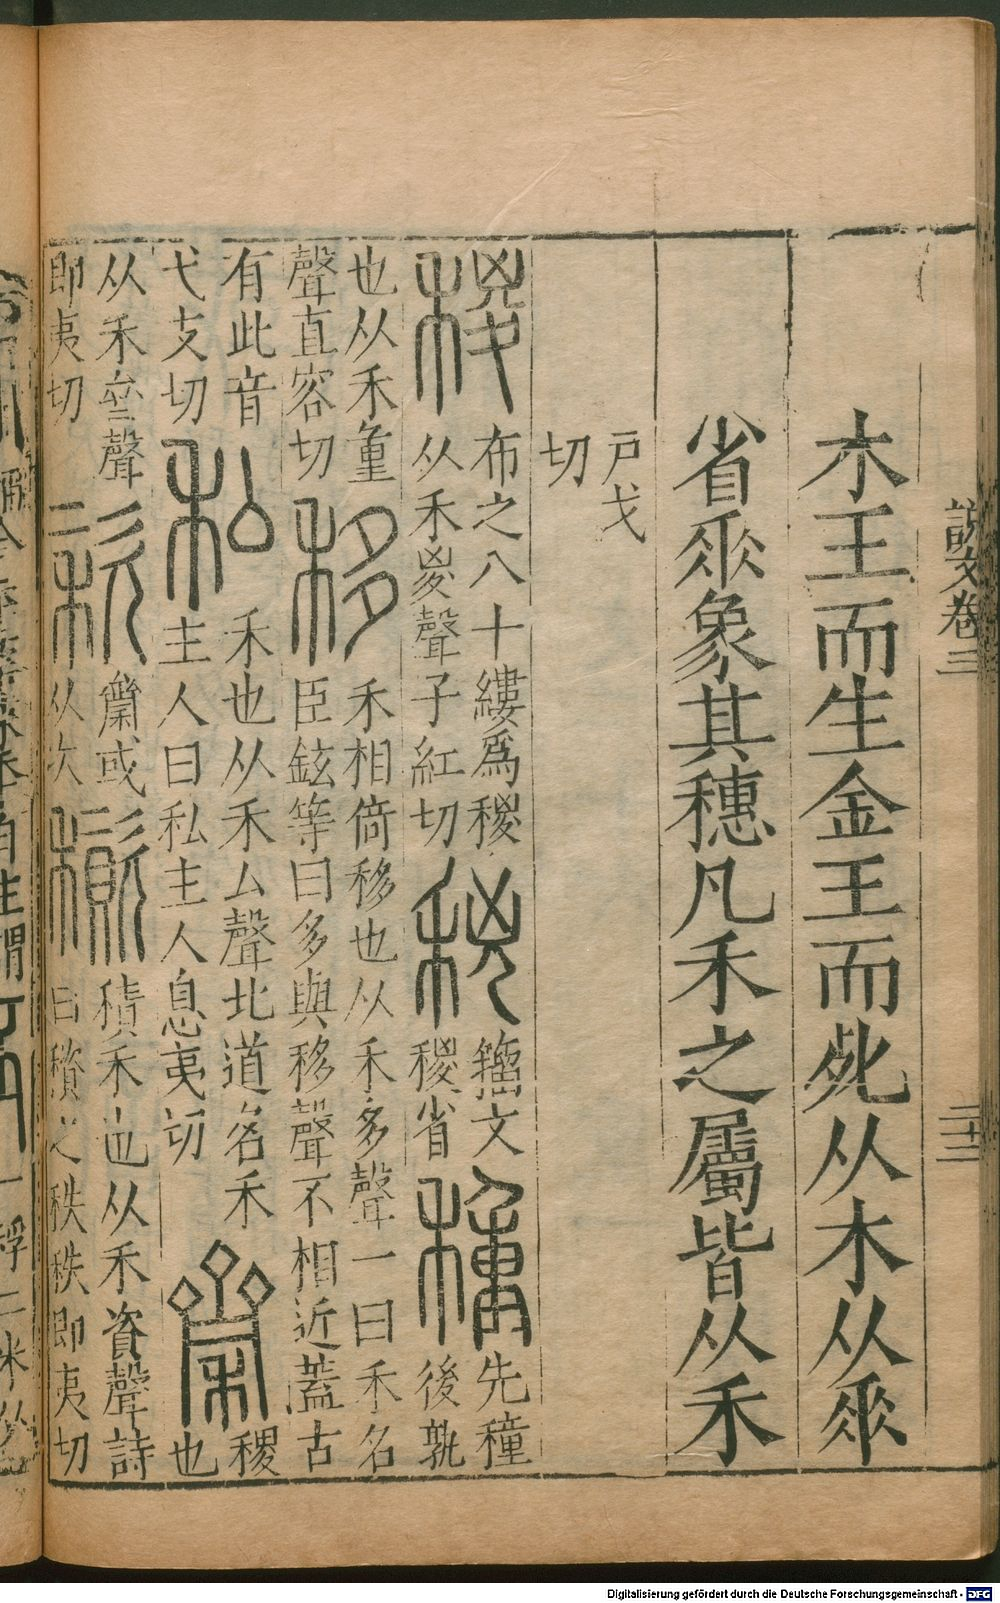 說文卷三
二十三
木王而生金王而死从木从𠂹
省𠂹象其穗凡禾之屬皆从禾
戸戈
切
稯
布之八十縷爲稯
从禾㚇聲子紅切
籒文
稯省
穜
先穜
後孰
也从禾重
聲直容切
移
禾相倚移也从禾多聲一曰禾名
臣鉉等曰多與移聲不相近蓋古
有此音
弋支切
私
禾也从禾厶聲北道名禾
主人曰私主人息夷切
齋
稷
也
从禾𠫼聲
即夷切
𪗉或
从次
積禾也从禾資聲詩
曰穧之秩秩即夷切
Digitalisierung gefördert durch die Deutsche Forschungsgemeinschaft - DFG